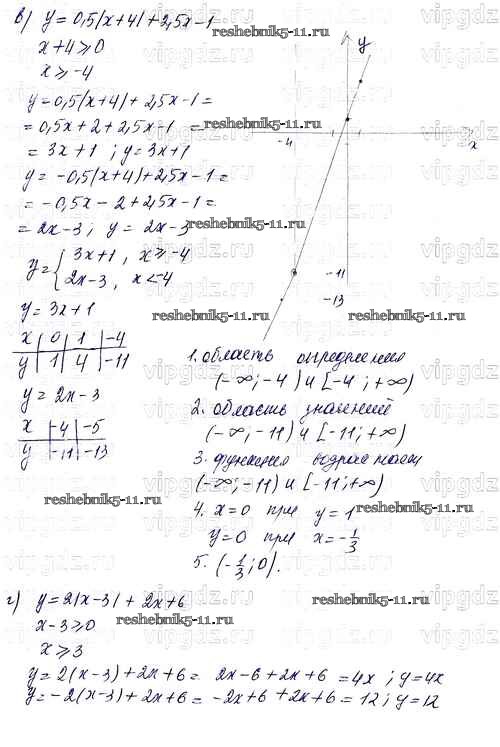 в) y = 0,5|x+4| + 2,5x-1
x+4 ≥ 0
x ≥ -4
y = 0,5(x+4) + 2,5x-1 =
= 0,5x+2+2,5x-1 =
= 3x+1 ; y = 3x+1
y = -0,5(x+4)+2,5x-1 =
= -0,5x - 2+2,5x-1 =
= 2x-3; y = 2x-3
y = { 3x+1, x ≥ -4
2x-3, x < -4
y = 3x+1
x | 0 | 1 | -4
y | 1 | 4 | -11
y = 2x-3
x | -4 | -5
y | -11 | -13
y
x
-4
1
-11
-13
1. область определения
(-∞; -4) и [-4; +∞)
2. область значений
(-∞; -11) и [-11; +∞)
3. функция возрастает
(-∞; -11) и [-11; +∞)
4. x=0 при y=1
y=0 при x=-1/3
5. (-1/3; 0).
г) y = 2|x-3| + 2x+6
x-3 ≥ 0
x ≥ 3
y = 2(x-3)+2x+6 = 2x-6+2x+6 = 4x ; y = 4x
y = -2(x-3)+2x+6 = -2x+6+2x+6 = 12; y = 12
reshebnik5-11.ru
reshebnik5-11.ru
reshebnik5-11.ru
reshebnik5-11.ru
reshebnik5-11.ru
reshebnik5-11.ru
reshebnik5-11.ru
reshebnik5-11.ru
reshebnik5-11.ru
vipgdz.ru